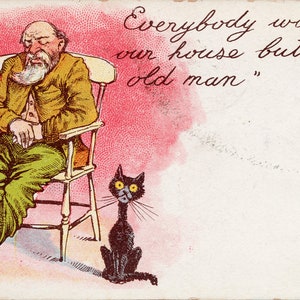 Everybody wo
our house but
old man"